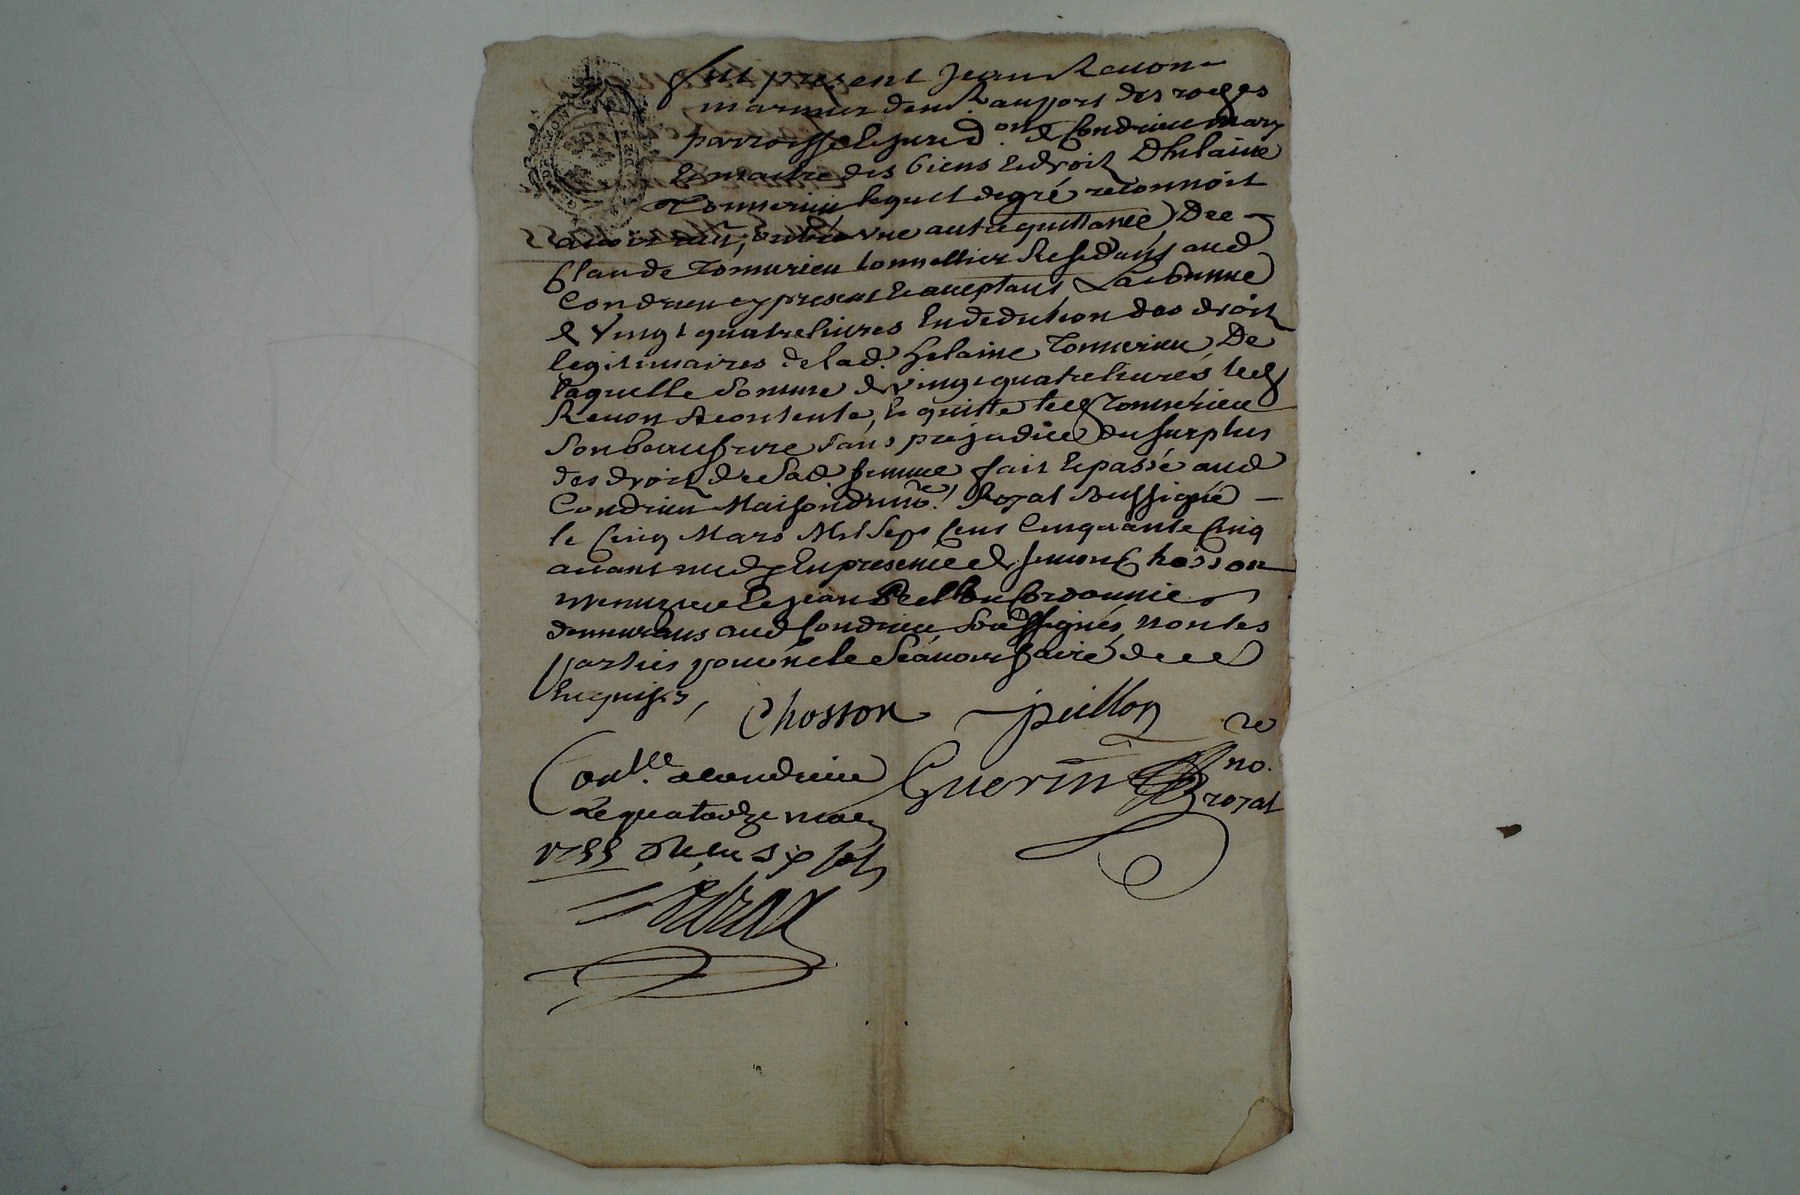 fut present Jean Reuon
marinier dem.t au port des roches
parroisse et jured.on de Condrieu mary
et maitre des biens et droit D'helaine
Tonnerieu lequel de gré reconnoit
avoir reçu, outre une autre quittance, De
Claude Tonnerieu tonnellier Residant aud
Condrieu cy present et acceptant La somme
de Vingt quatre livres En deduction des droit
legitimaires de lad. helaine Tonnerieu De
laquelle somme de vingt quatre livres led
Reuon se contente, et quitte led Tonnerieu
Son beau frere sans prejudice du surplus
des droit de Sad. femme fait et passé aud
Condrieu Maison du no.re Royal soussigné —
le Cinq Mars Mil Sept Cent Cinquante Cinq
avant midy En presence de Chosson
et Jean Peillon Cordonnier
demeurans aud Condrieu Soussignés, non les
parties pour ne le Scavoir faire de ce
Enquises,
Chosson Jpeillon
Con.llé a condrieu Guerin no.re
Le quatorze mars royal
1755 Recu six sols